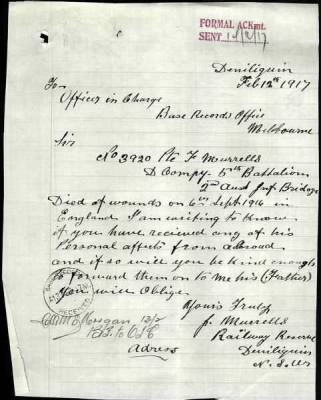 FORMAL ACKmt.
SENT 14/2/17
Deniliquin
Feb 12th 1917
To
Officer in Charge
Base Records Office
Melbourne
Sir
No 3920 Pte F Murrells
D Compy 5th Battalion
2nd Aust Inf Bridge
Died of wounds on 6th Sept 1916 in
England I am wishing to know
if you have recieved any of his
Personal affects from abroad
and if so will you be kind enough
to forward them on to me his (Father)
you will Oblige
Yours Truly
J. Murrells
Railway Reserve
Deniliquin
N.S.W
RECEIVED
Morgan 13/2
B.R. to O/C
Adress